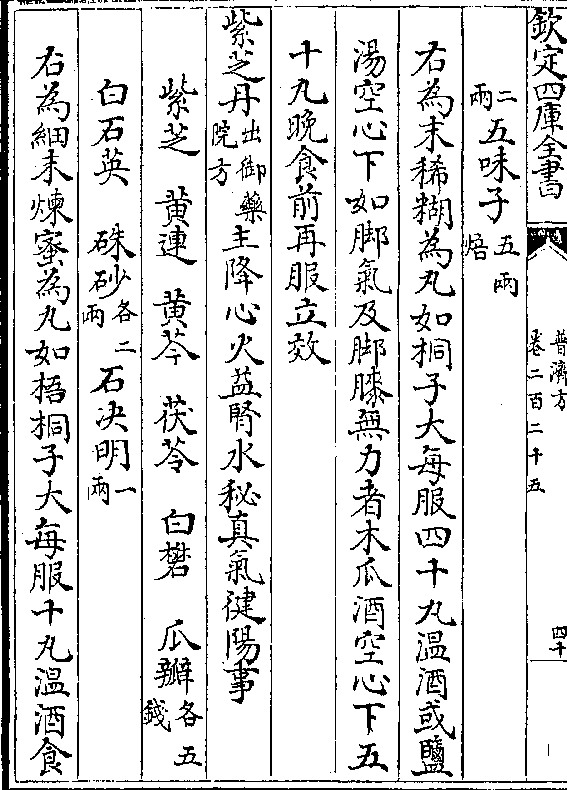 欽定四庫全書
普濟方
卷二百二十五
四十
二兩五味子五兩焙
右為末稀糊為丸如桐子大每服四十丸温酒或鹽
湯空心下如脚氣及脚膝無力者木瓜酒空心下五
十丸晚食前再服立效
紫芝丹出御藥院方主降心火益腎水秘真氣健陽事
紫芝 黄連 黄芩 茯苓 白礬 瓜瓣各五錢
白石英 硃砂各二兩石决明一兩
右為細末煉蜜為丸如梧桐子大每服十丸温酒食